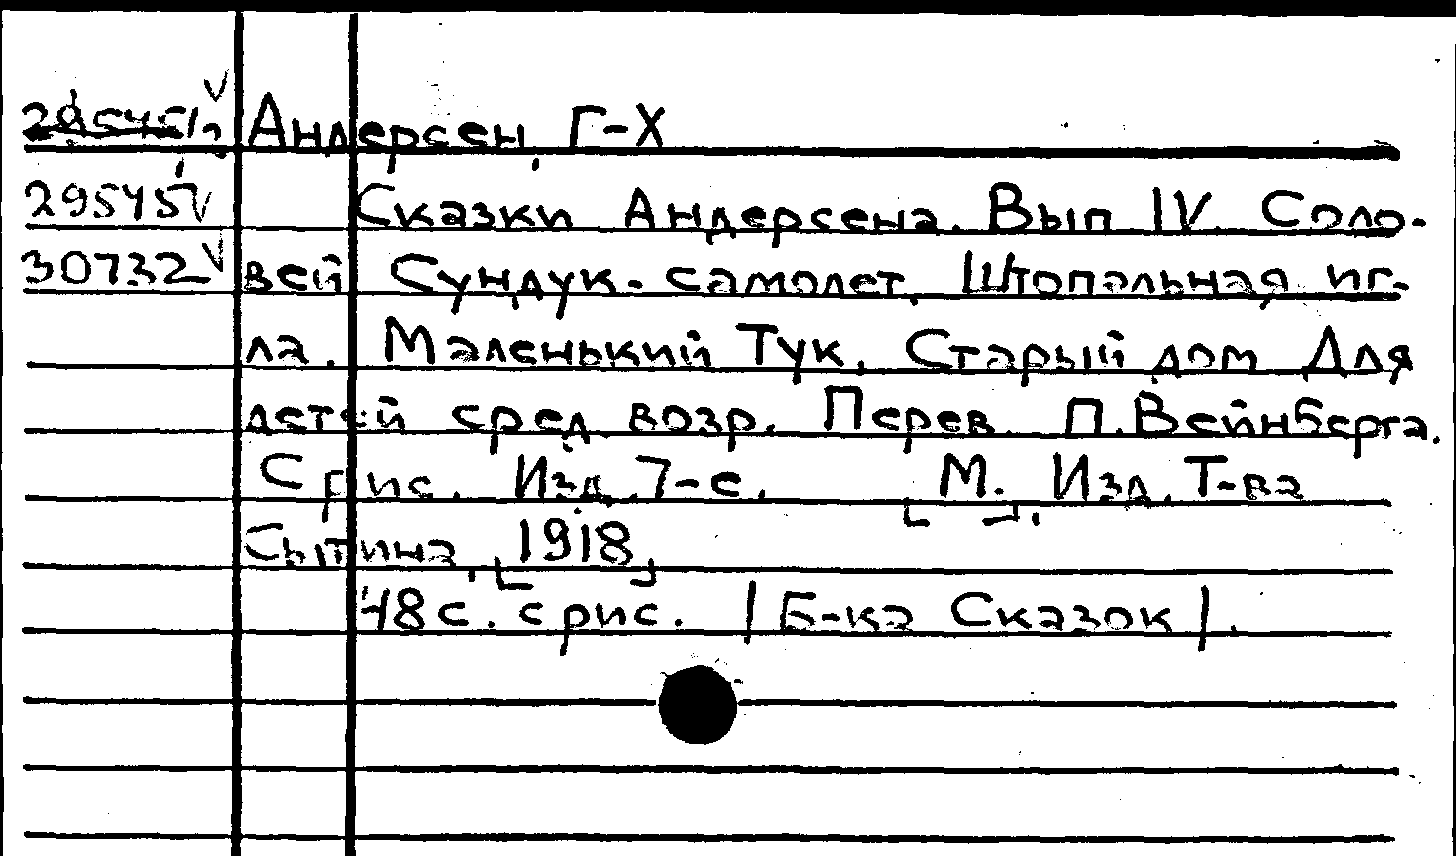 Андерсен, Г-Х
29545 V Сказки Андерсена. Вып IV. Соло-
30732 V вей Сундук-самолет. Штопальная иг-
ла. Маленький Тук. Старый дом Для
детей сред. возр. Перев. П.Вейнберга.
С рис. Изд. 7-е. [М.]. Изд. Т-ва
Сытина, [1918]
48 с. с рис. | Б-ка Сказок |.